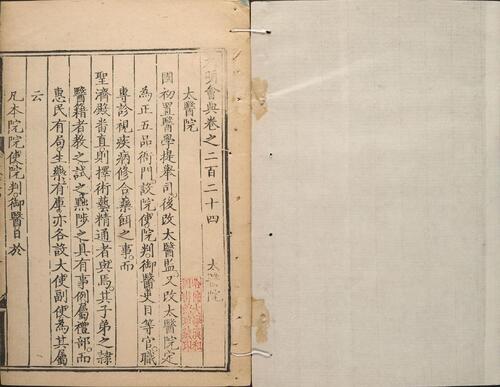 大明會典卷之二百二十四
太醫院
太醫院
國初置醫學提舉司後改太醫監又改太醫院定
為正五品衙門設院使院判御醫吏目等官職
專診視疾病修合藥餌之事而
聖濟殿番直則擇術藝精通者與焉其子弟之隸
醫籍者教之試之黜陟之具有事例屬禮部而
惠民有局生藥有庫亦各設大使副使為其屬
云
凡本院院使院判御醫日於